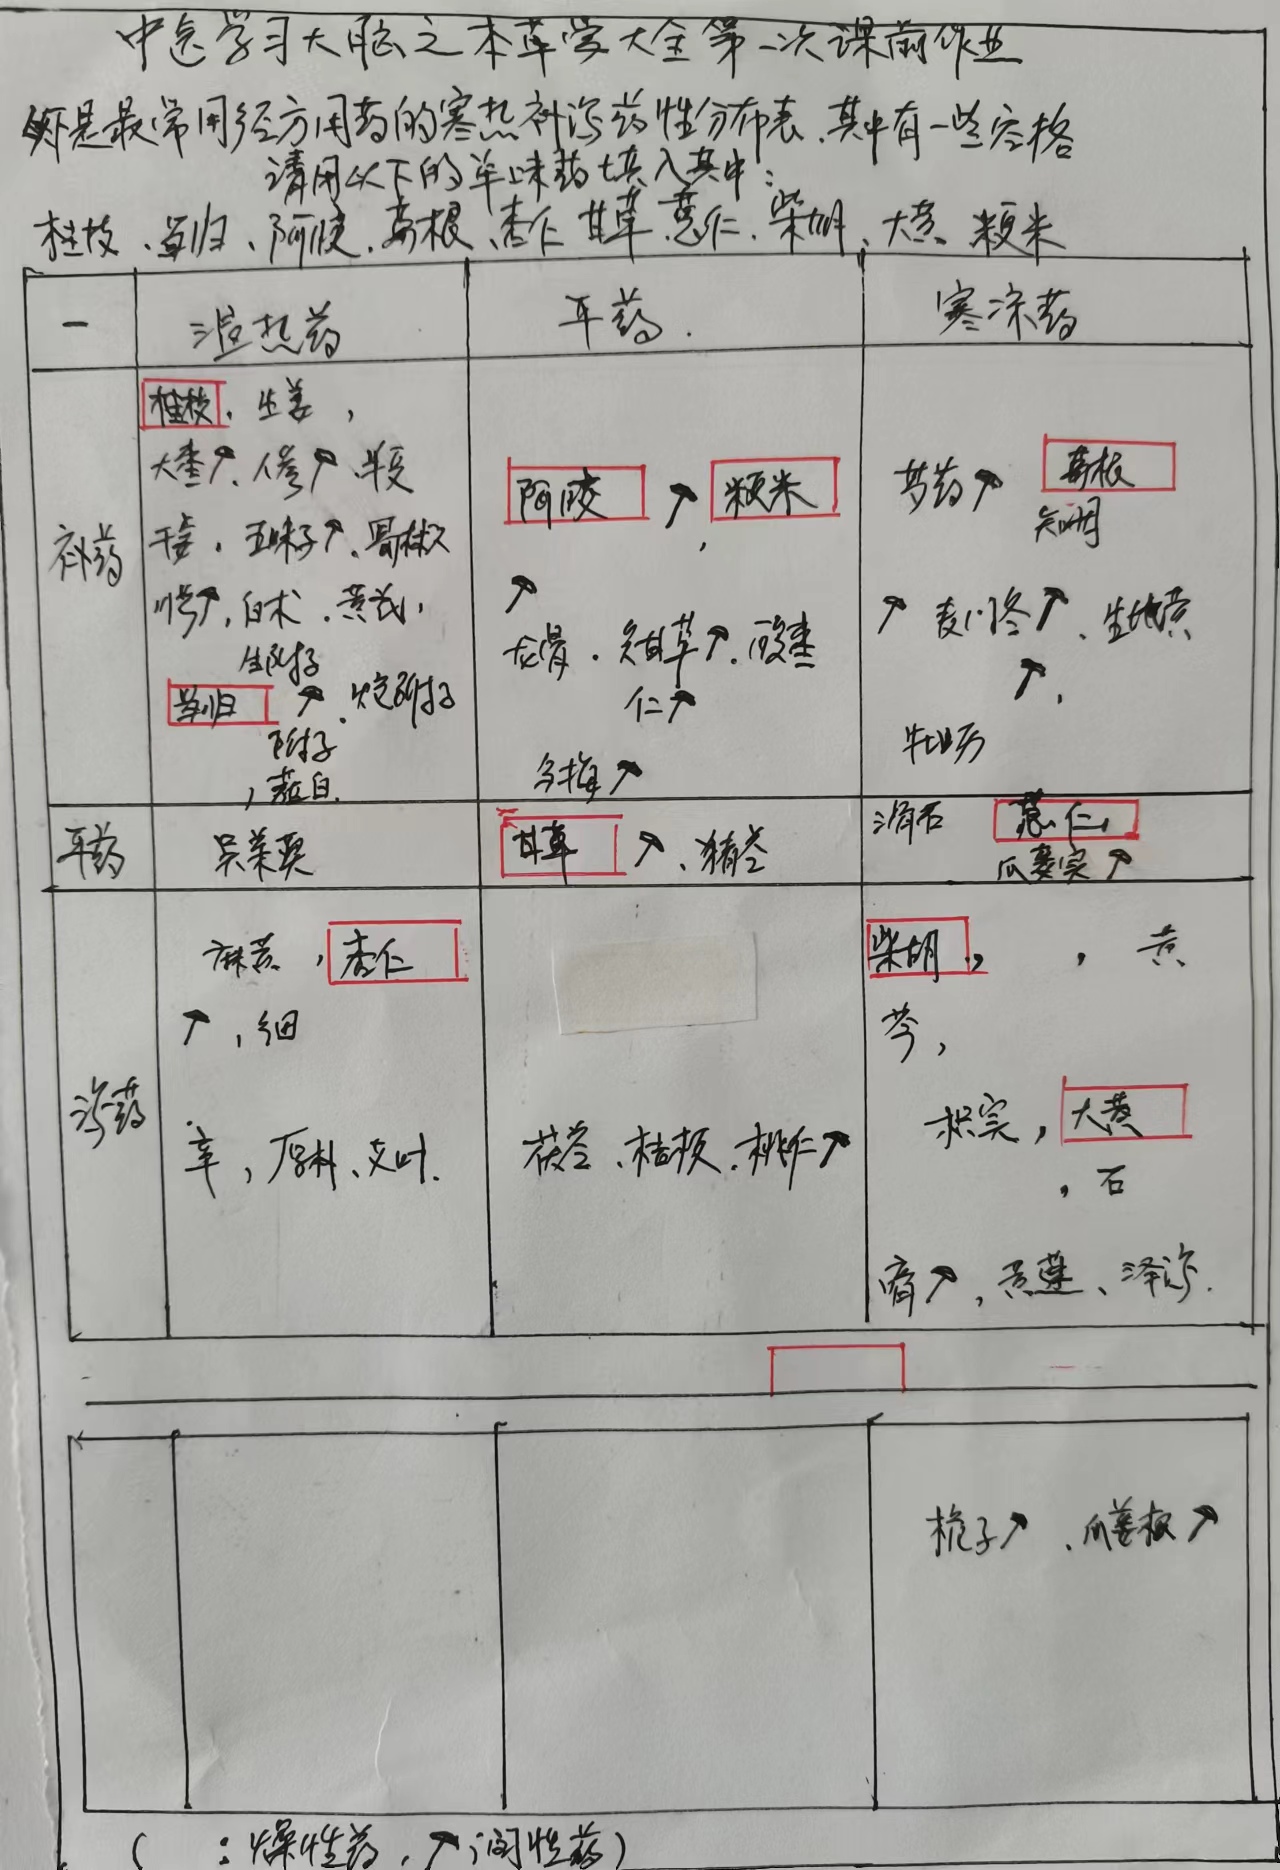 中医学习大脑之本草学大全第一次课前作业
下是最常用经方用药的寒热补泻药性分布表、其中有一些空格
请用以下的单味药填入其中：
桂枝、当归、阿胶、葛根、杏仁 甘草、薏仁、柴胡、大黄、粳米
一 温热药 平药. 寒凉药
补药
桂枝、生姜，
大枣↗、人参↗、半夏
干姜、五味子↗、蜀椒
川芎↗、白术、黄芪、
生附子
当归 ↗、炮附子
附子
，薤白.
阿胶 ↗，粳米
↗
龙骨、炙甘草↗、酸枣
仁↗
乌梅↗
芍药↗ 葛根
知母
↗ 麦门冬↗、生地黄
↗，
牡蛎
平药 吴茱萸 甘草 ↗、猪苓 滑石 薏仁、
瓜蒌实↗
泻药
麻黄，杏仁
↗，细
辛，厚朴、艾叶.
茯苓、桔梗、桃仁↗
柴胡，，黄
芩，
枳实，大黄
，石
膏↗，黄连、泽泻.
栀子↗、瓜蒌根↗
( ：燥性药，↗润性药)